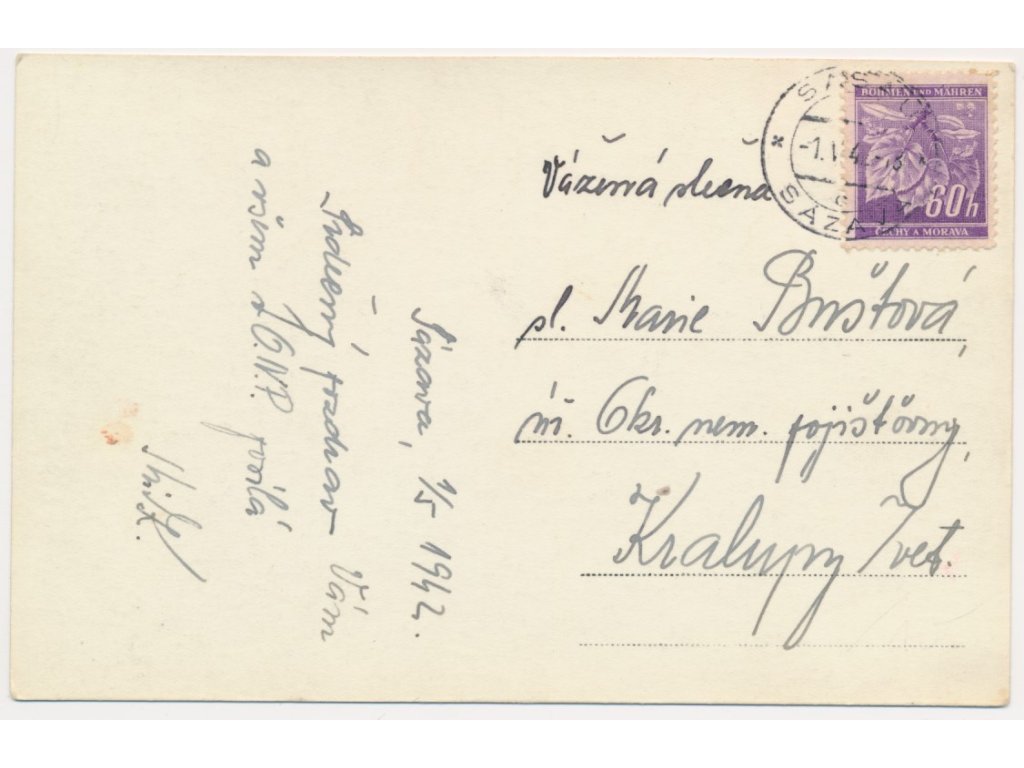 Sázava, 1/5 1942.
Srdečný pozdrav Vám
a všem z O.N.P. posílá
SÁZAVA
-1.V.42-13
BÖHMEN UND MÄHREN
60h
ČECHY A MORAVA
Vážená slečna
sl. Marie Buštová,
úř. Okr. nem. pojišťovny,
Kralupy /vlt.